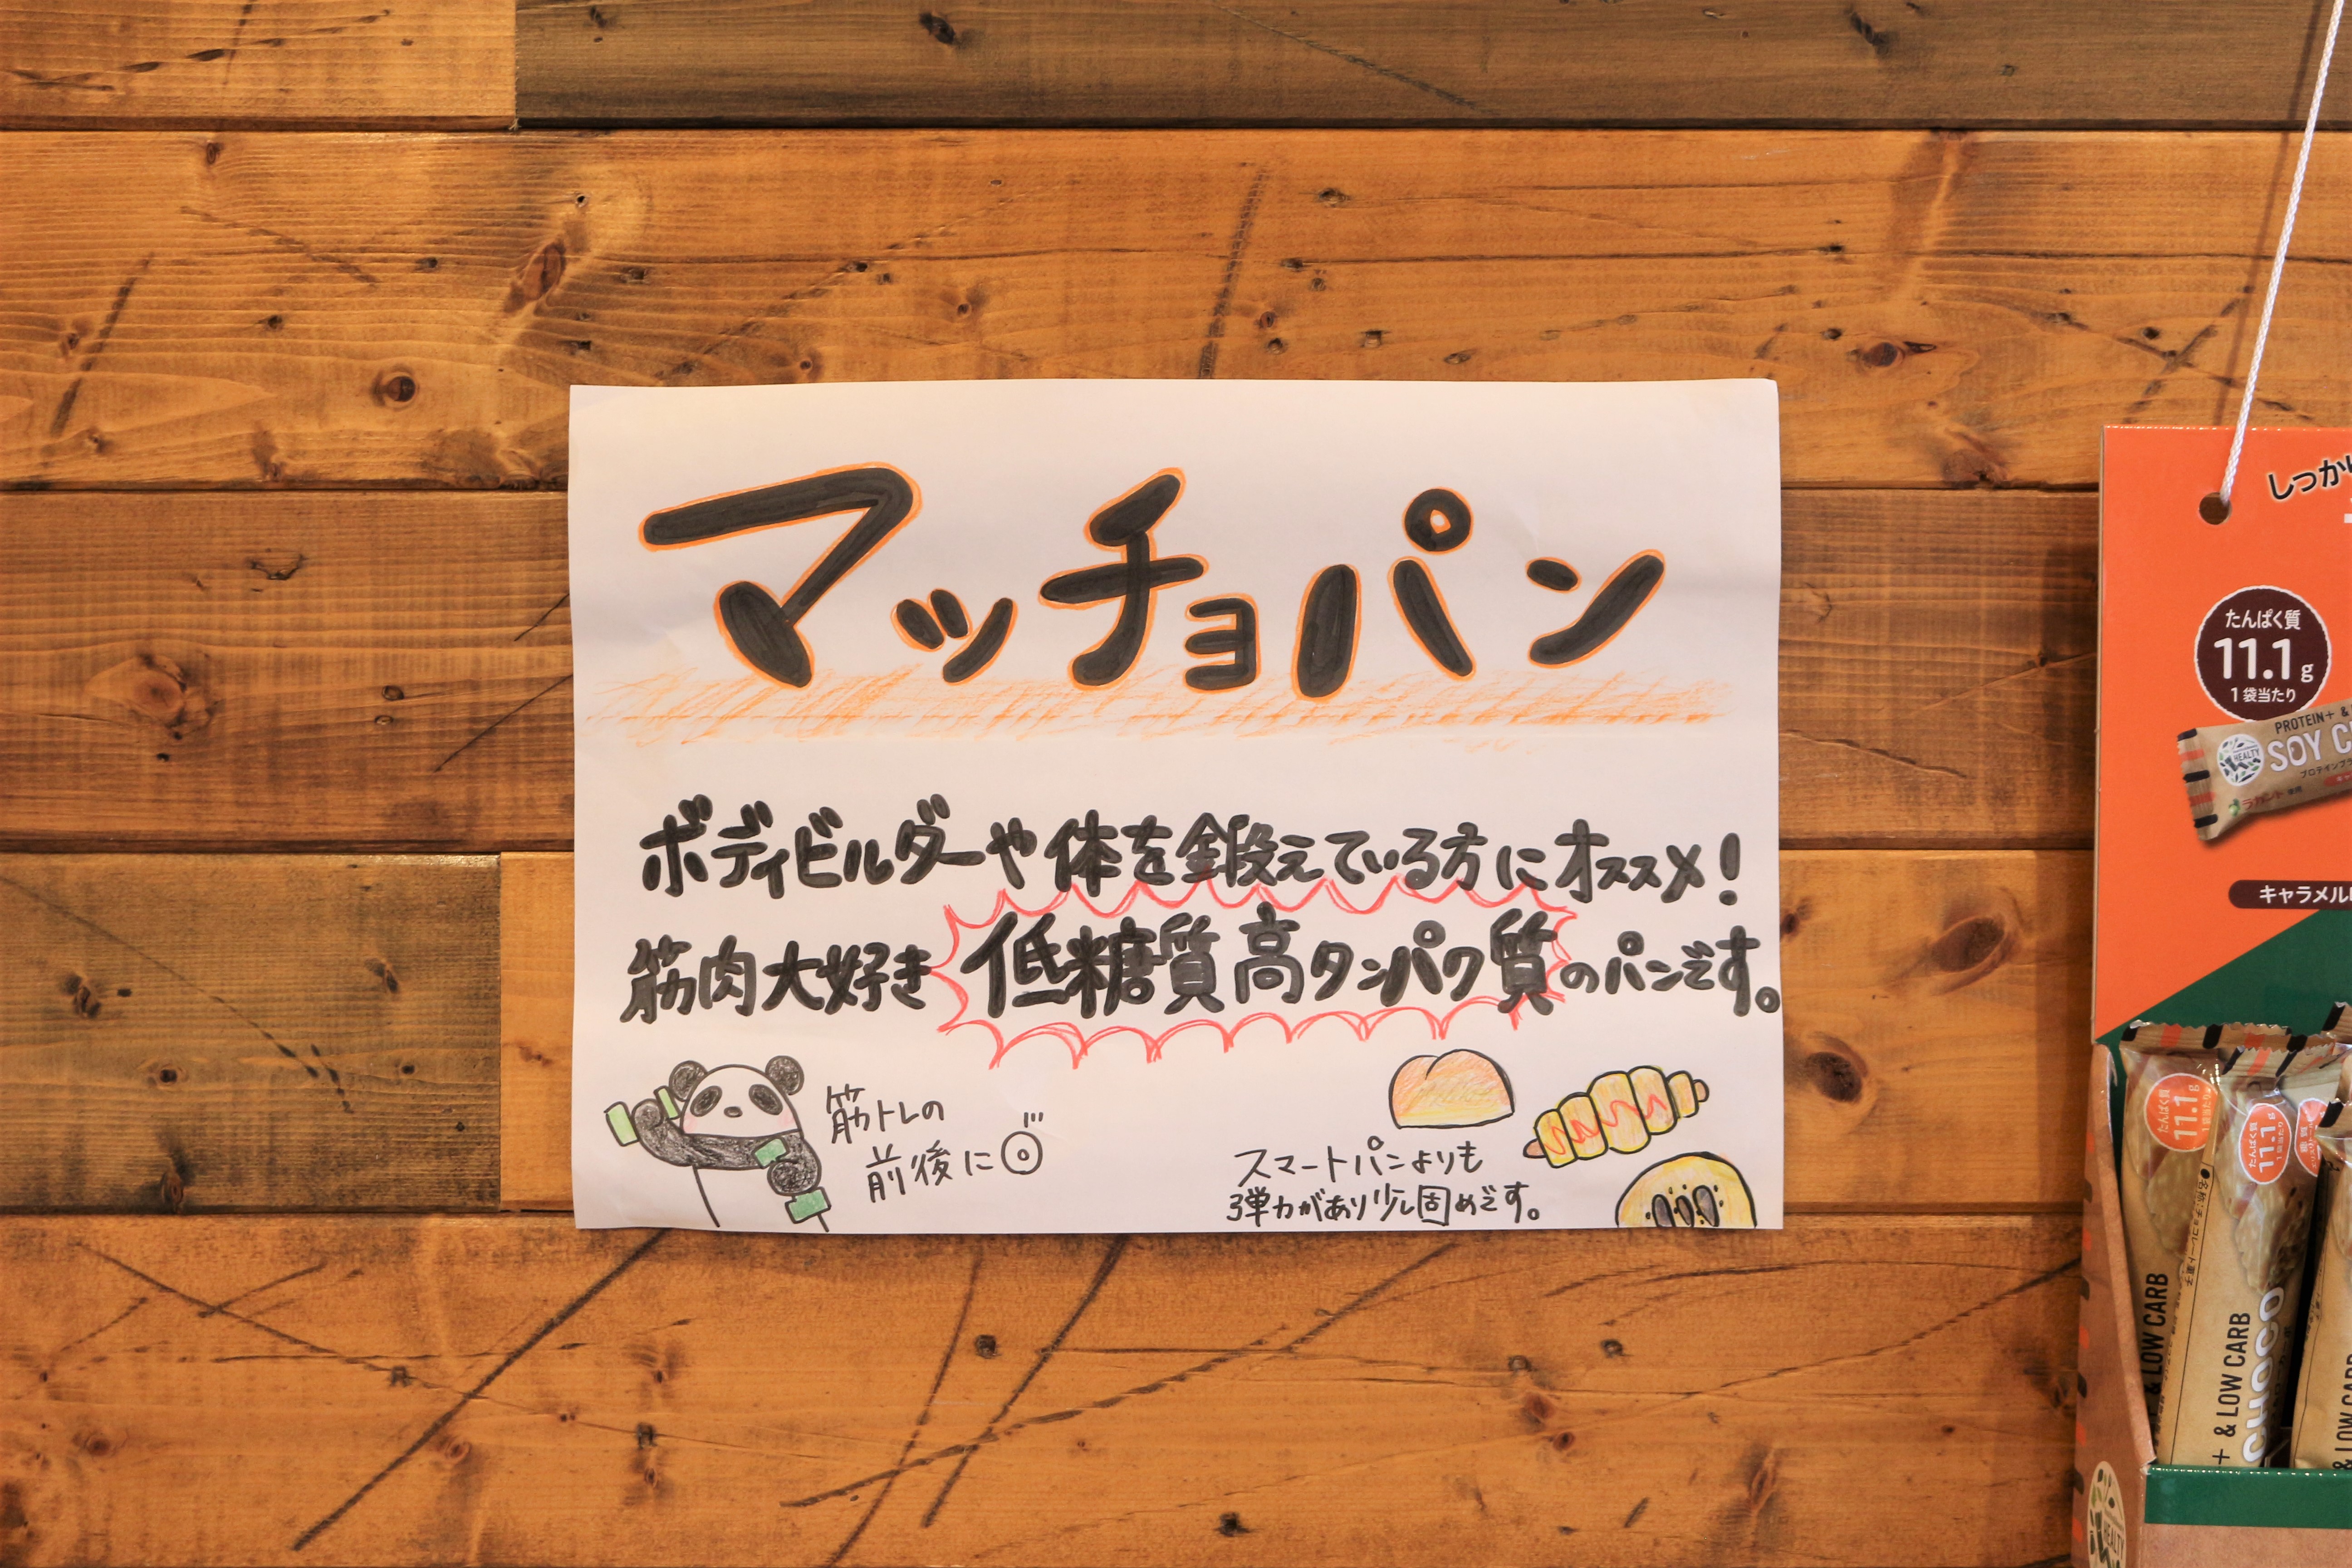 マッチョパン
ボディビルダーや体を鍛えている方にオススメ!
筋肉大好き低糖質高タンパク質のパンです。
筋トレの
前後に◎
スマートパンよりも
弾力があり少し固めです。
しっか
たんぱく質
11.1g
1袋当たり
PROTEIN+ &
HEALTY
SOY C
ラカント 使用
キャラメル
たんぱく質
11.1g
たんぱく質
11.1g
& LOW CARB
+ & LOW CARB
CHOCO
& LOW CARB
HEALTY